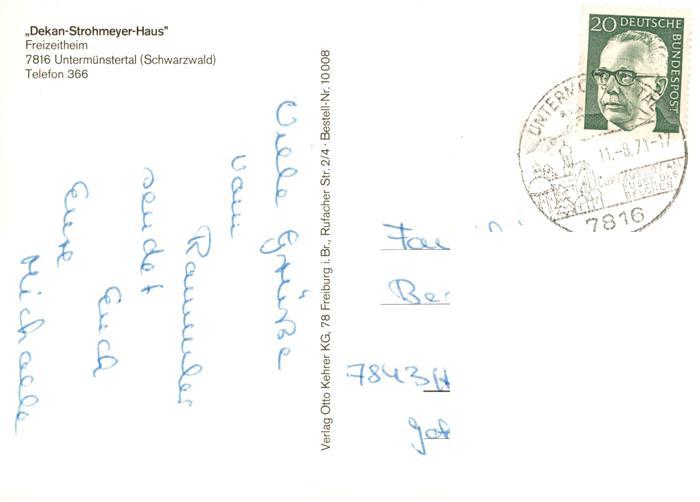 „Dekan-Strohmeyer-Haus"
Freizeitheim
7816 Untermünstertal (Schwarzwald)
Telefon 366
Viele Grüße
vom
sendet
Euch
Eure
Michaele
Verlag Otto Kehrer KG, 78 Freiburg i. Br., Rufacher Str. 2/4 · Bestell-Nr. 10008
20 DEUTSCHE
BUNDESPOST
11.-8.71-17
LUFTKURORT AM
FUSSE DES
BELCHEN
7816
7843